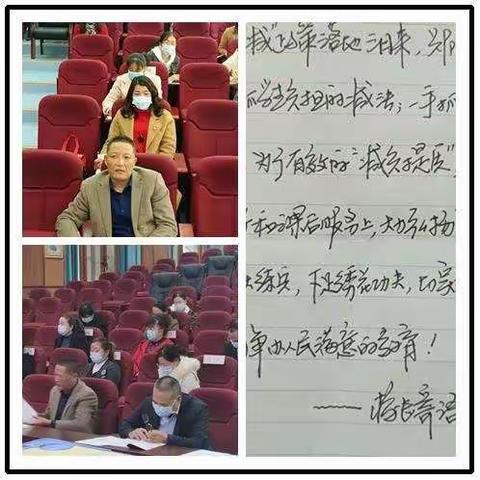 减"政策落地以来，郑
学生负担的减法；一手抓
为了有效的"减负提质"
和课后服务上，大力弘扬
大练兵，下足绣花功夫，切实
办人民满意的教育！
——校长寄语